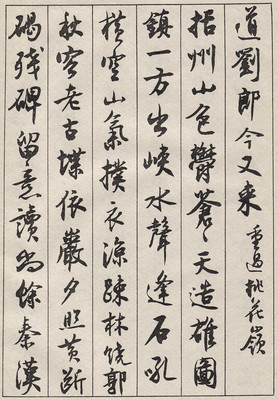 道劉郎今又来 重過桃花嶺
括州山色鬱蒼〻天造雄圖
鎮一方出峽水聲逢石吼
橫空山氣撲衣涼疎林繞郭
秋容老古堞依巖夕照黃斷
碣殘碑留意讀尚餘秦漢